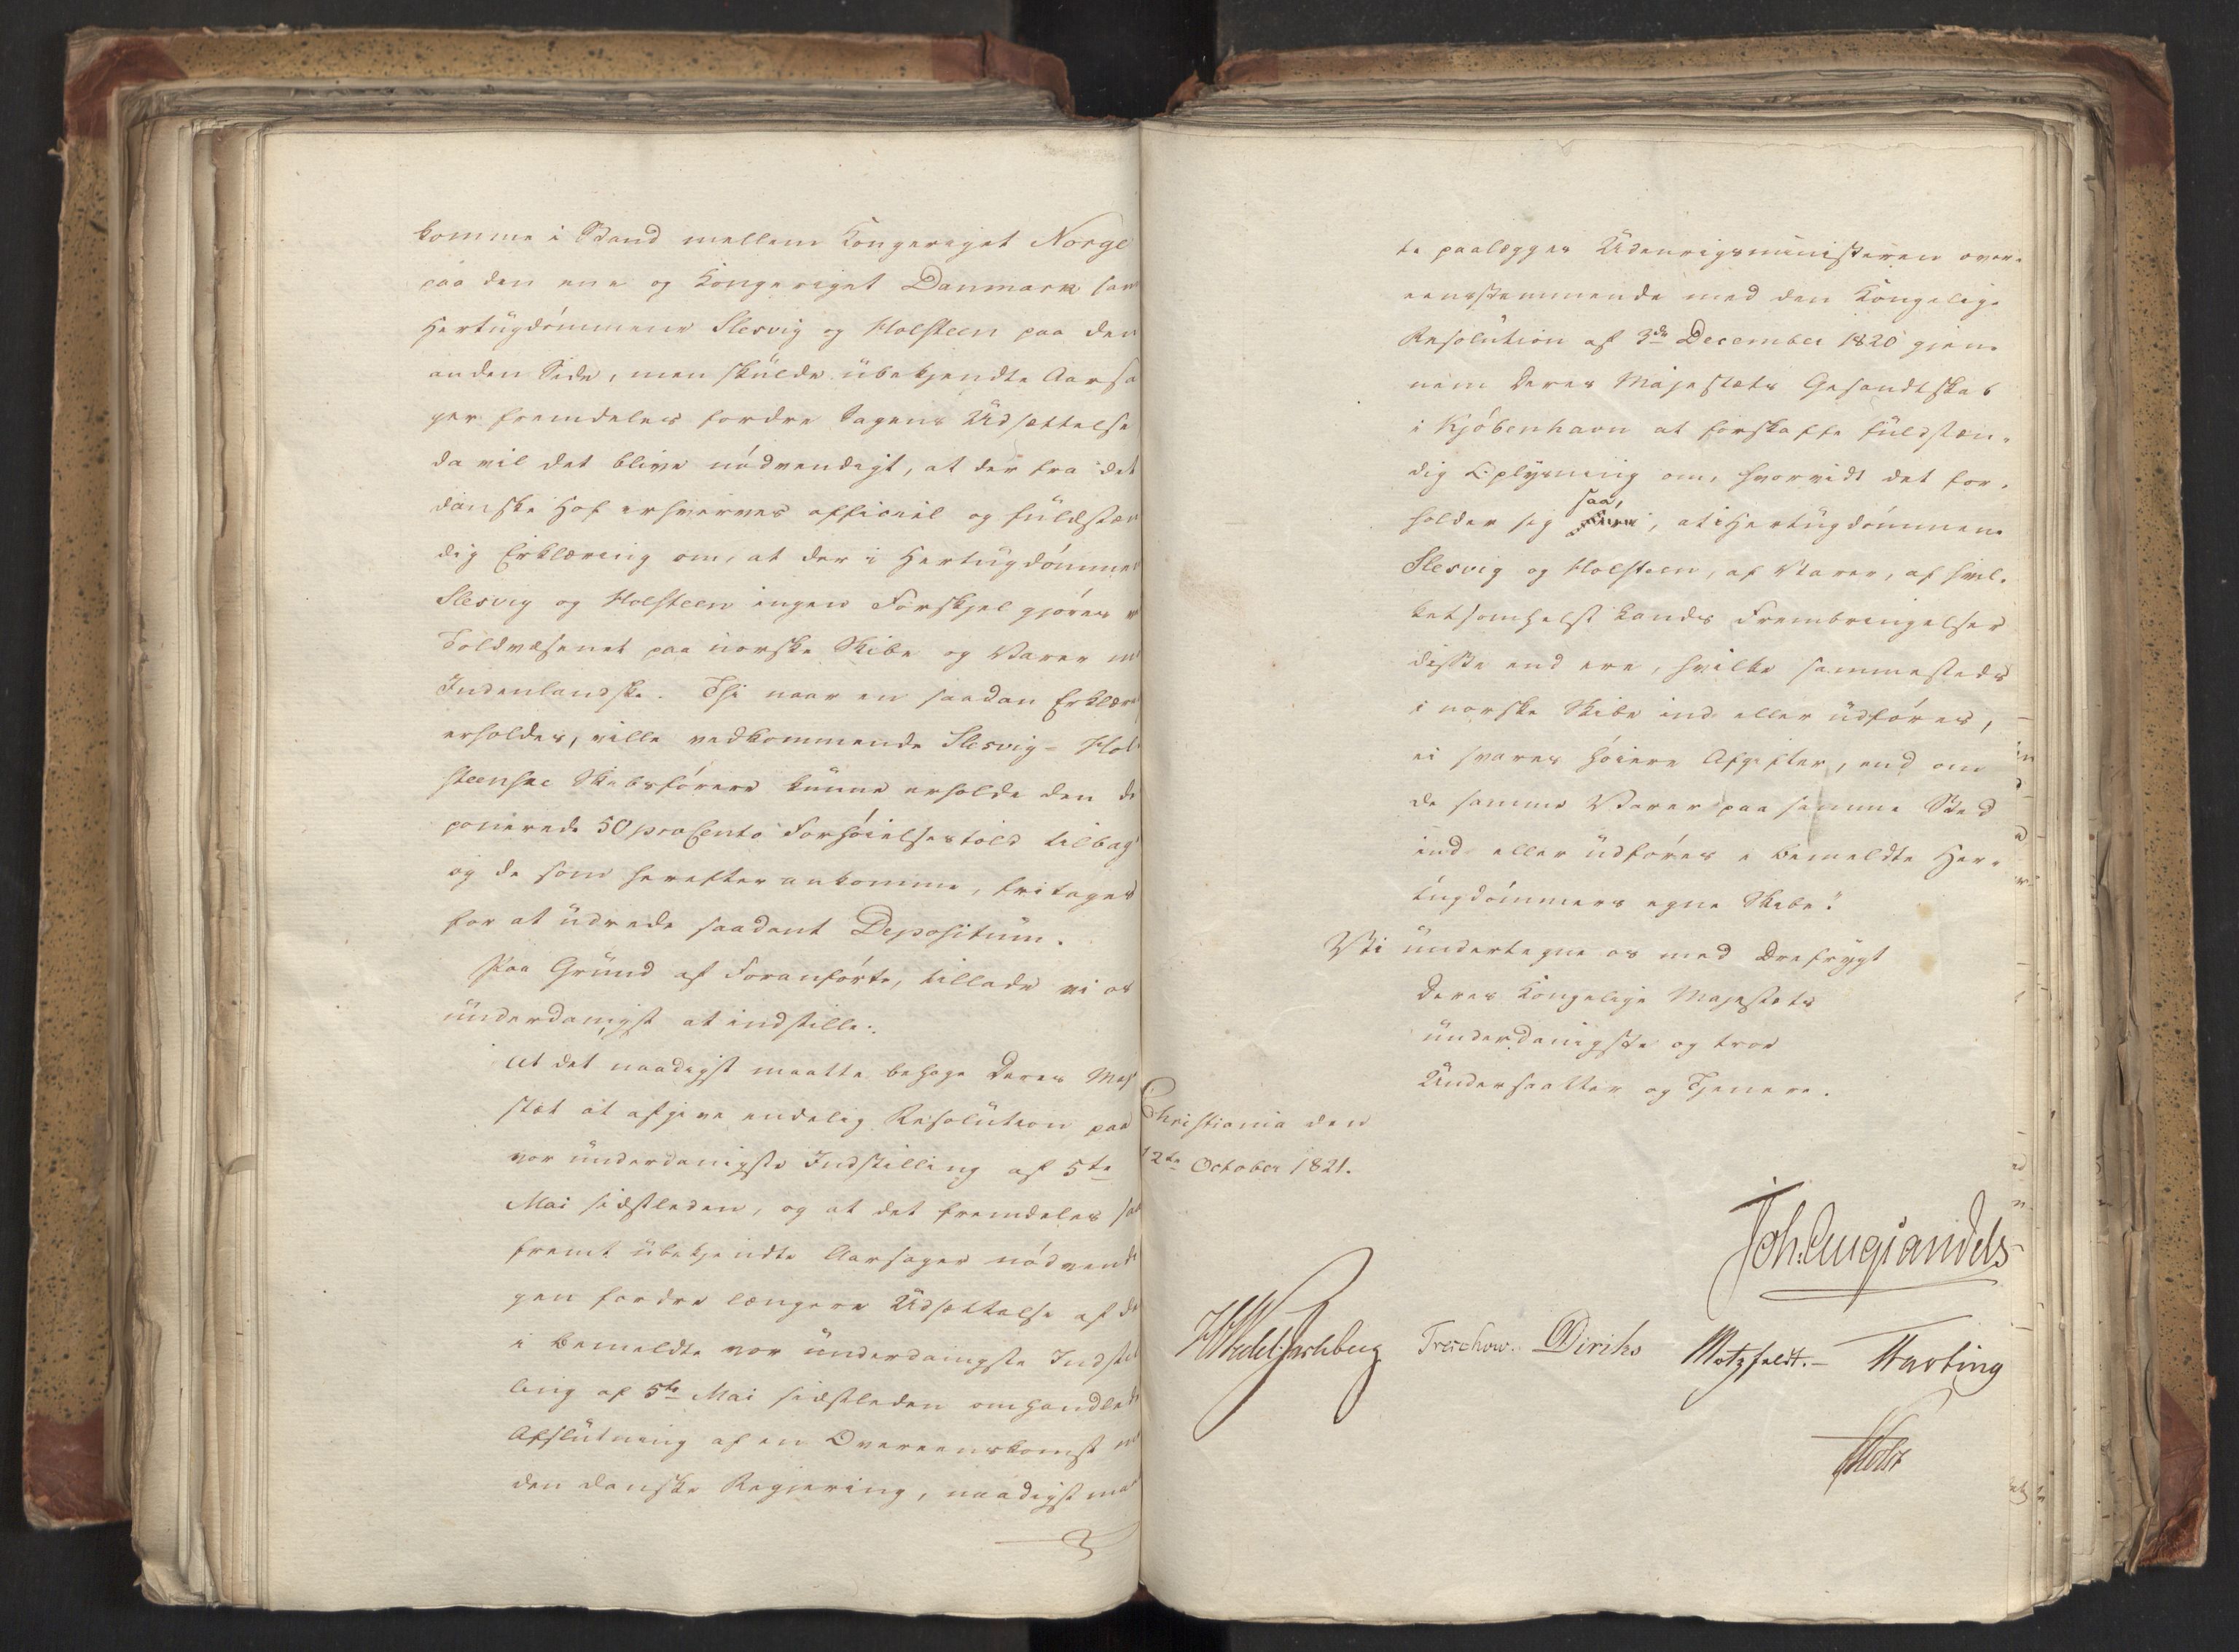 komme i Stand mellem Kongeriget Norge
paa den ene og Kongeriget Danmark sam
Hertugdømmene Slesvig og Holsteen paa den
anden Side, men skulde ubekjendte Aarsa
ger fremdeles fordre Sagens Udsættelse
da vil det blive nødvendigt, at der fra det
danske Hof erhverves officiel og fuldstæn
dig Erklæring om, at der i Hertugdømme
Slesvig og Holsteen ingen Forskjel gjøres
Toldvæsenet paa norske Skibe og Varer
Indenlandske. Thi naar en saadan Erklær
erholdes, ville vedkommende Slesvig-Hol
steenske Skibsførere kunne erholde den de
ponerede 50 procento Forhøielsestold tilbag
og de som herefter ankomme, fritages
for at udrede saadant Depositum.
Paa Grund af Foranførte, tillade vi os
underdanigst at indstille:
At det naadigst maatte behage Deres Maj
stæt at afgive endelig Resolution paa
vor underdanigste Indstilling af 5te
Mai sidstleden, og at det fremdeles saa
fremt ubekjendte Aarsager nødvendi
gen fordre længere Udsættelse af de
i bemeldte vor underdanigste Indstil
ling af 5te Mai sidstleden omhandlede
Afslutning af en Overeenskomst
den danske Regjering, naadigst maa
te paalægges Udenrigsministeren over-
eensstemmende med den Kongelige
Resolution af 3de December 1820 gjen-
nem Deres Majestæts Gesandtskab
i Kjøbenhavn at forskaffe fuldstæn-
dig Oplysning om, hvorvidt det for-
saa,
holder sig , at i Hertugdømmene
Slesvig og Holsteen, af Varer, af hvil-
ketsomhelst Lands Frembringelser
disse end ere, hvilke sammesteds
i norske Skibe ind eller udføres,
ei svares høiere Afgifter, end om
de samme Varer paa samme Sted
ind eller udføres i bemeldte Her-
tugdømmers egne Skibe."
Vi undertegne os med Ærefrygt
Deres Kongelige Majestæts
underdanigste og troe
Undersaatter og Tjenere.
Christiania den
12te October 1821.
Joh. Aug. Sandels
HWedel Jarlsberg Treschow. Diriks Motzfeldt.- Hasting
Holst